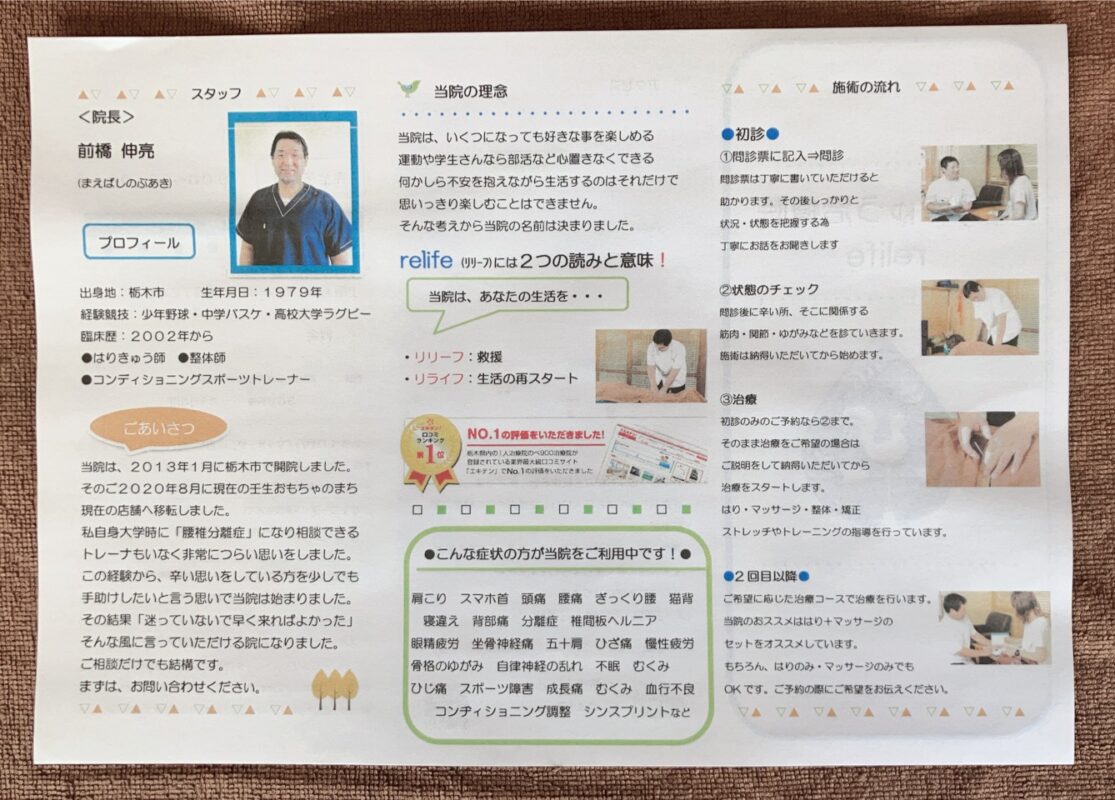 スタッフ
<院長>
前橋 伸亮
(まえばしのぶあき)
プロフィール
出身地：栃木市 生年月日：1979年
経験競技：少年野球・中学バスケ・高校大学ラグビー
臨床歴：2002年から
●はりきゅう師 ●整体師
●コンディショニングスポーツトレーナー
ごあいさつ
当院は、2013年1月に栃木市で開院しました。
そのご2020年8月に現在の壬生おもちゃのまち
現在の店舗へ移転しました。
私自身大学時に「腰椎分離症」になり相談できる
トレーナもいなく非常につらい思いをしました。
この経験から、辛い思いをしている方を少しでも
手助けしたいと言う思いで当院は始まりました。
その結果「迷っていないで早く来ればよかった」
そんな風に言っていただける院になりました。
ご相談だけでも結構です。
まずは、お問い合わせください。
当院の理念
当院は、いくつになっても好きな事を楽しめる
運動や学生さんなら部活など心置きなくできる
何かしら不安を抱えながら生活するのはそれだけで
思いっきり楽しむことはできません。
そんな考えから当院の名前は決まりました。
relife (ﾘﾘｰﾌ)には2つの読みと意味！
当院は、あなたの生活を・・・
・リリーフ：救援
・リライフ：生活の再スタート
エキテン!
口コミ
ランキング
第1位
NO.1の評価をいただきました!
栃木県内の1人治療院のべ900治療院が
登録されている業界最大級口コミサイト
「エキテン」でNo.1の評価をいただきました
●こんな症状の方が当院をご利用中です！●
肩こり スマホ首 頭痛 腰痛 ぎっくり腰 猫背
寝違え 背部痛 分離症 椎間板ヘルニア
眼精疲労 坐骨神経痛 五十肩 ひざ痛 慢性疲労
骨格のゆがみ 自律神経の乱れ 不眠 むくみ
ひじ痛 スポーツ障害 成長痛 むくみ 血行不良
コンディショニング調整 シンスプリントなど
施術の流れ
●初診●
①問診票に記入⇒問診
問診票は丁寧に書いていただけると
助かります。その後しっかりと
状況・状態を把握する為
丁寧にお話をお聞きします
②状態のチェック
問診後に辛い所、そこに関係する
筋肉・関節・ゆがみなどを診ていきます。
施術は納得いただいてから始めます。
③治療
初診のみのご予約なら②まで。
そのまま治療をご希望の場合は
ご説明をして納得いただいてから
治療をスタートします。
はり・マッサージ・整体・矯正
ストレッチやトレーニングの指導を行っています。
●2回目以降●
ご希望に応じた治療コースで治療を行います。
当院のおススメははり＋マッサージの
セットをオススメしています。
もちろん、はりのみ・マッサージのみでも
OKです。ご予約の際にご希望をお伝えください。